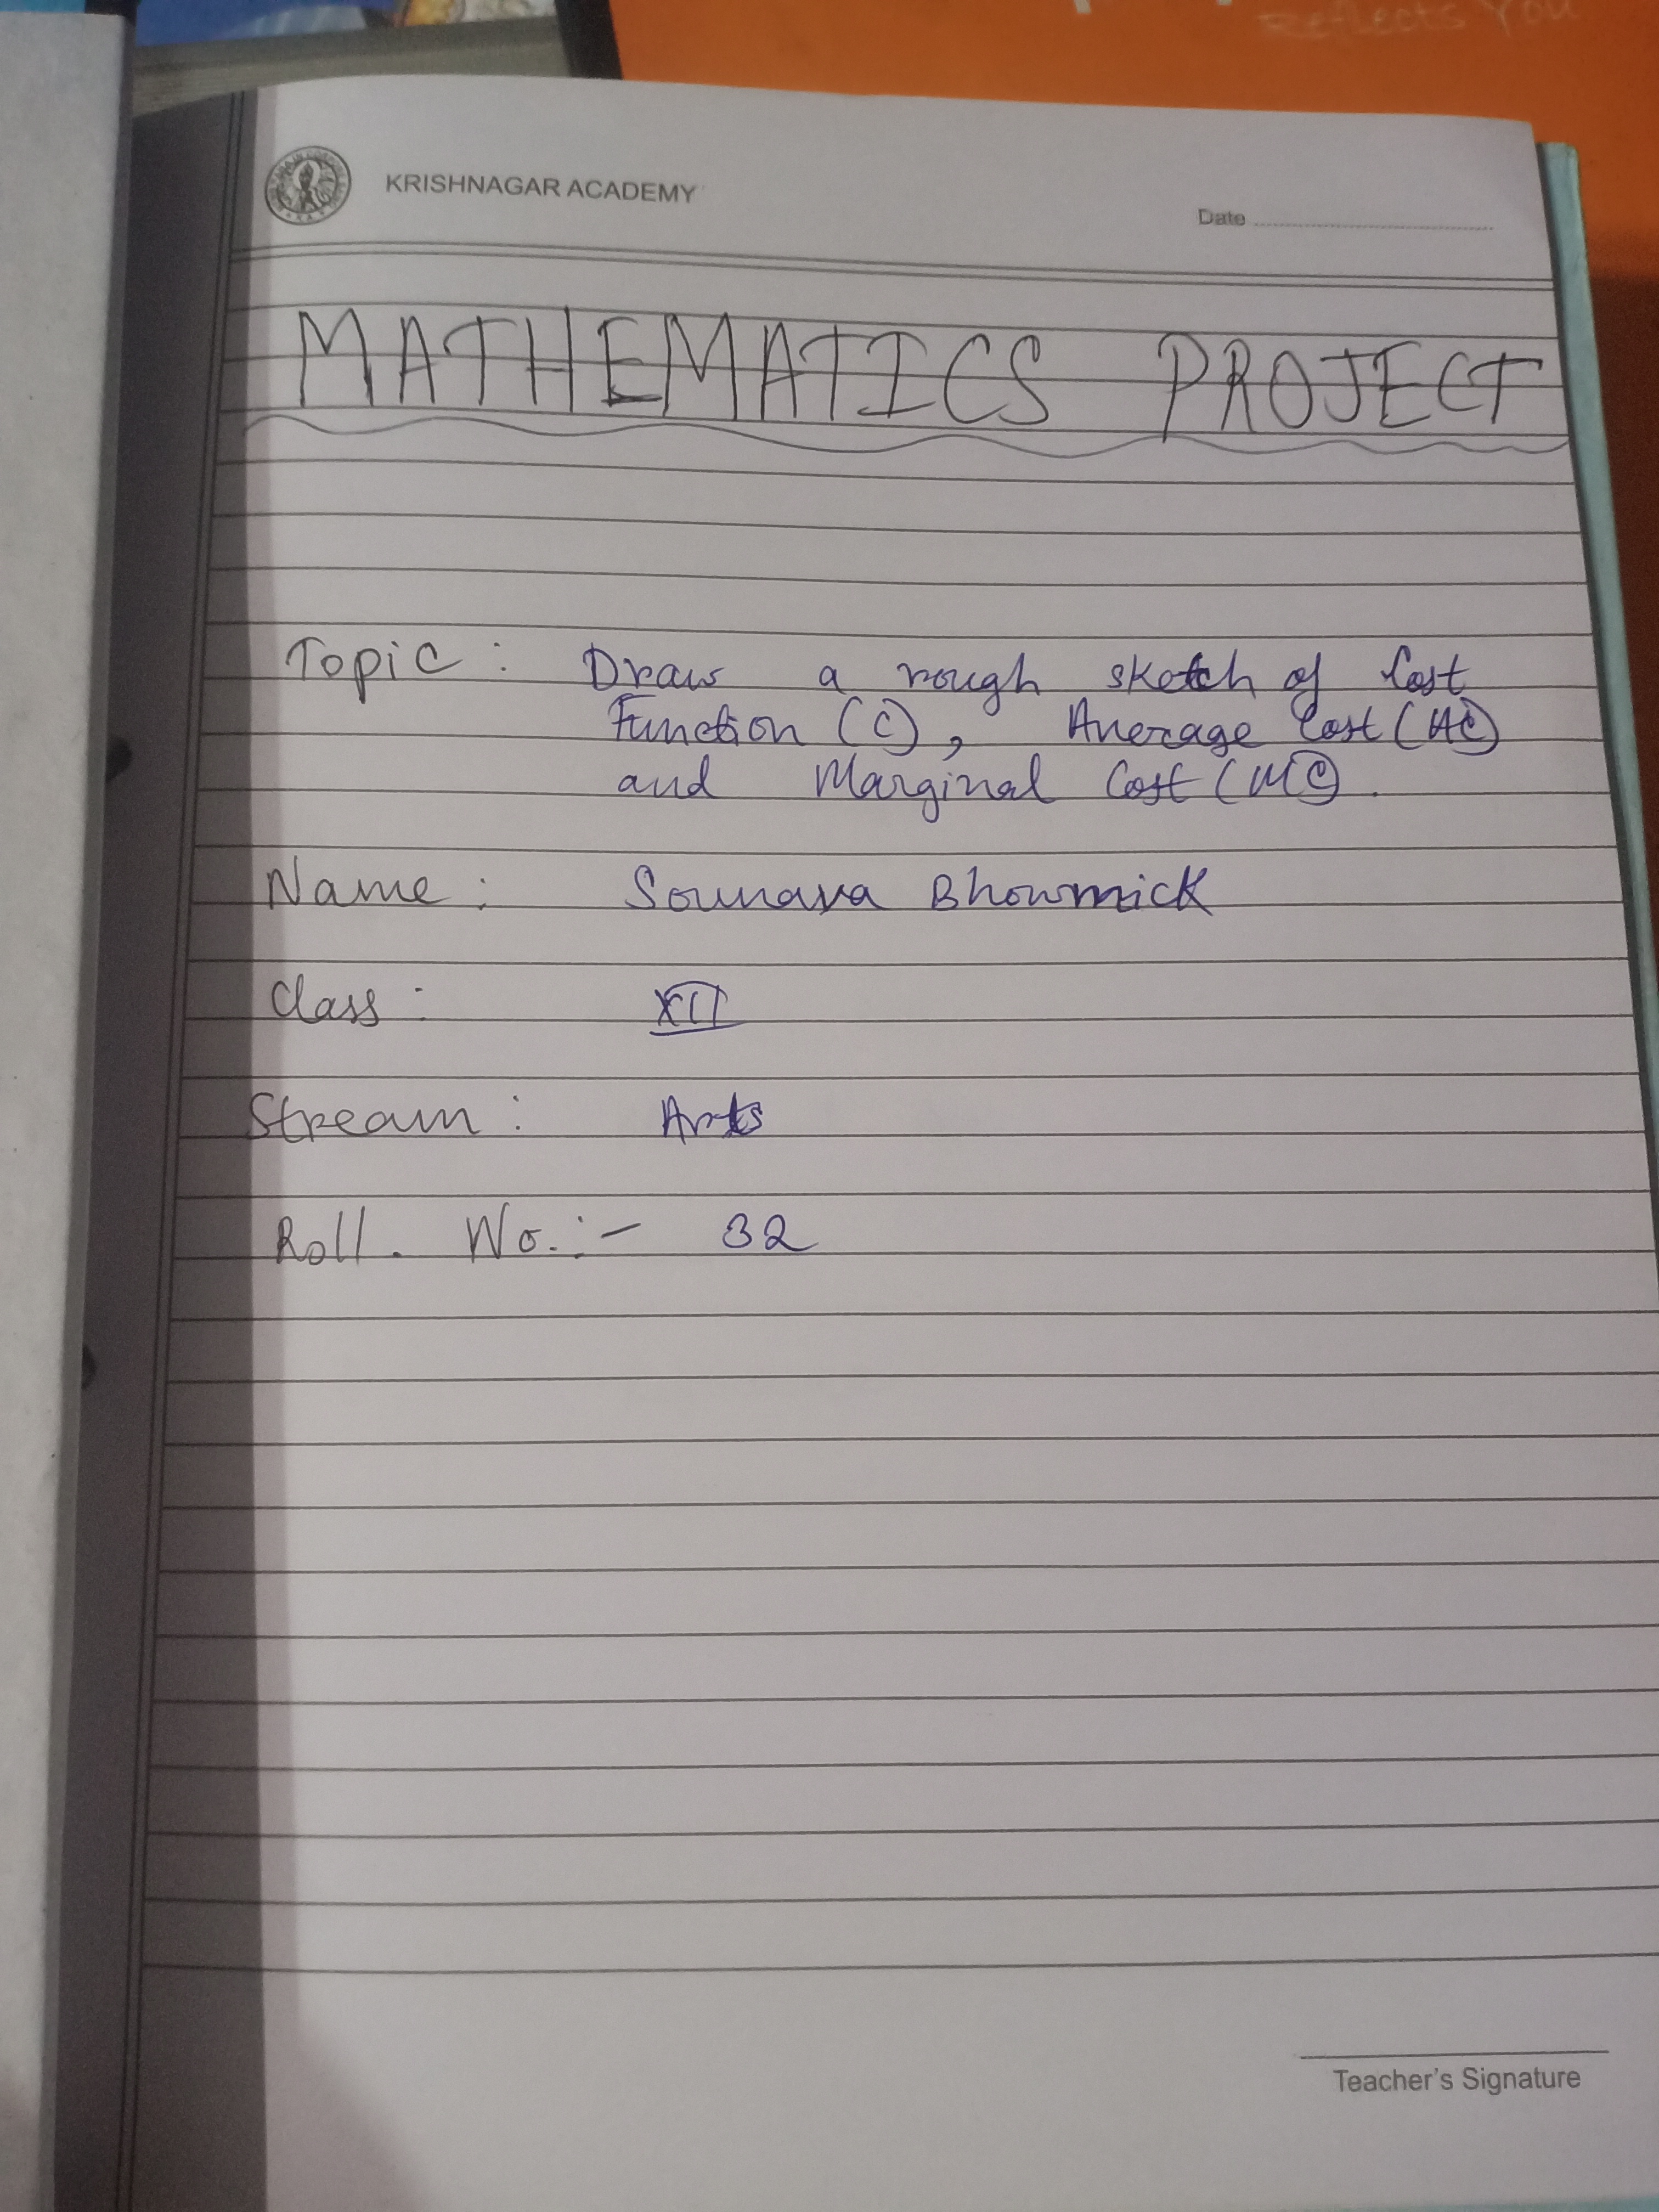 Reflects You
KRISHNAGAR ACADEMY
Date
MATHEMATICS PROJECT
Topic : Draw a rough sketch of Cost
Function (C), Average Cost (AC)
and Marginal Cost (MC).
Name : Sounava Bhowmick
Class : XII
Stream : Arts
Roll. No. :- 32
Teacher's Signature